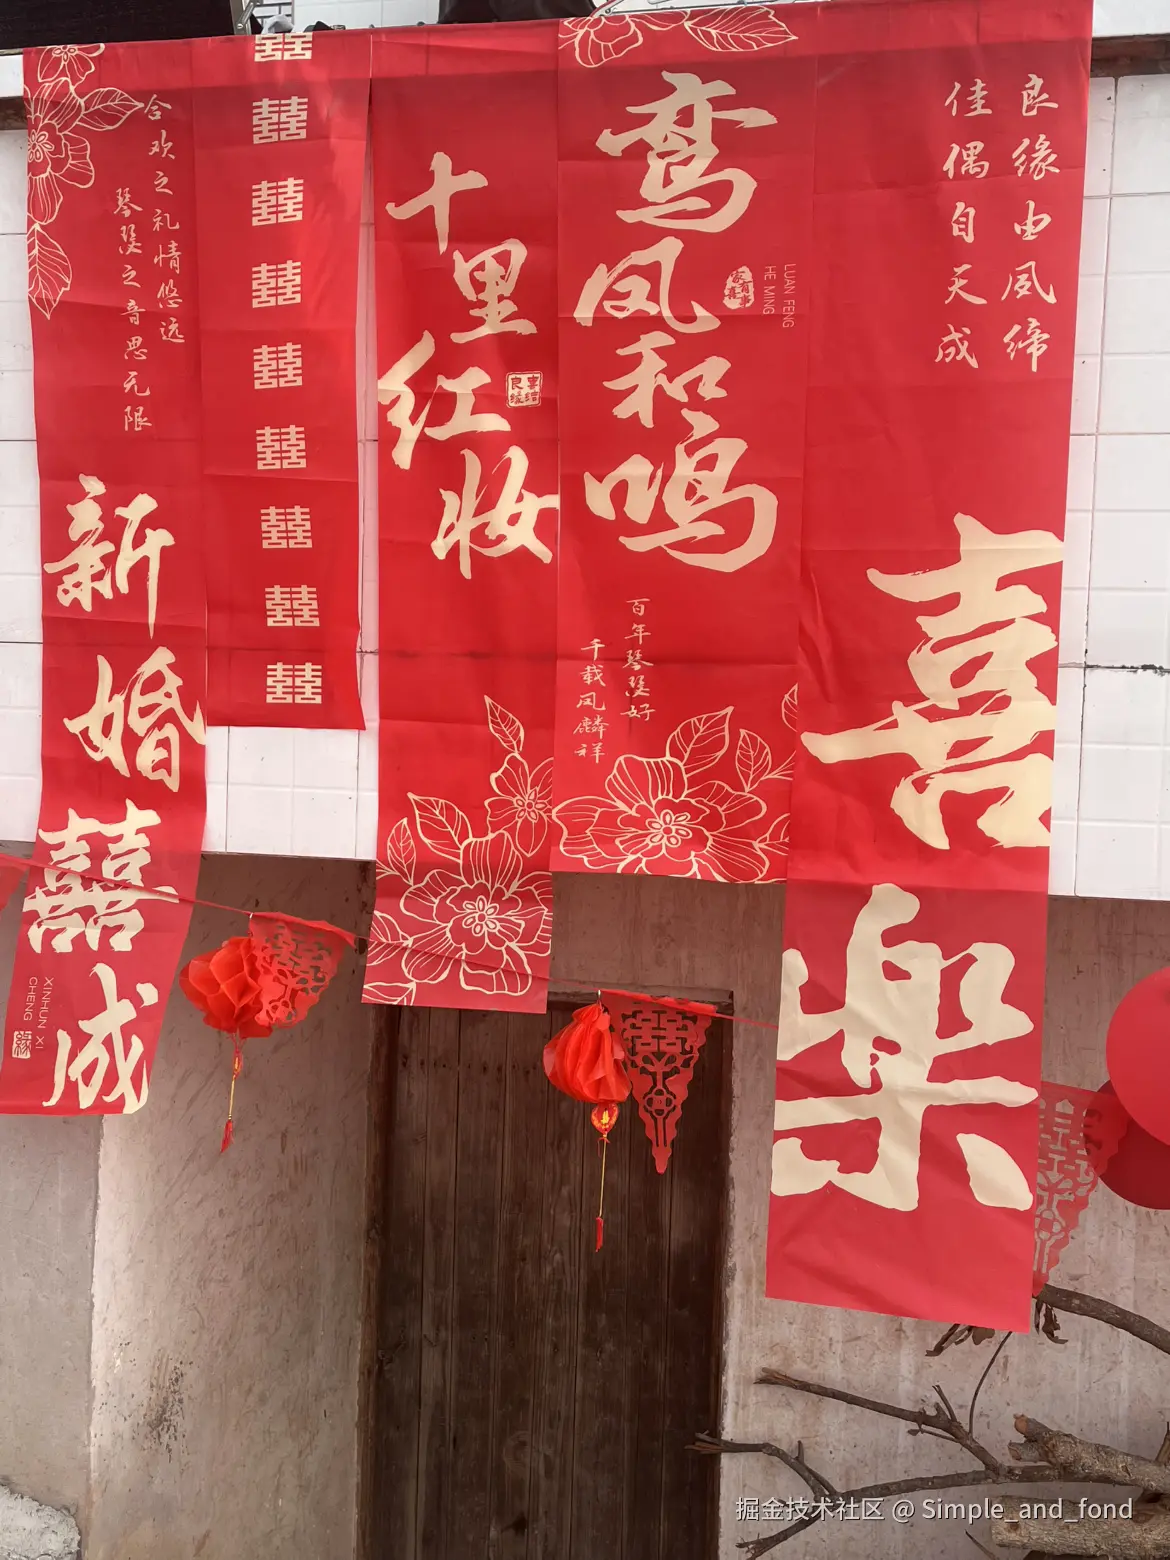 合欢之礼情悠远
琴瑟之音思无限
新婚囍成
XINHUN XI
CHENG
緣
囍
囍
囍
囍
囍
囍
囍
囍
囍
十里红妆
良缘
鸾凤和鸣
LUAN FENG
HE MING
百年琴瑟好
千载凤麟祥
良缘由夙缔
佳偶自天成
喜樂
掘金技术社区 @ Simple_and_fond